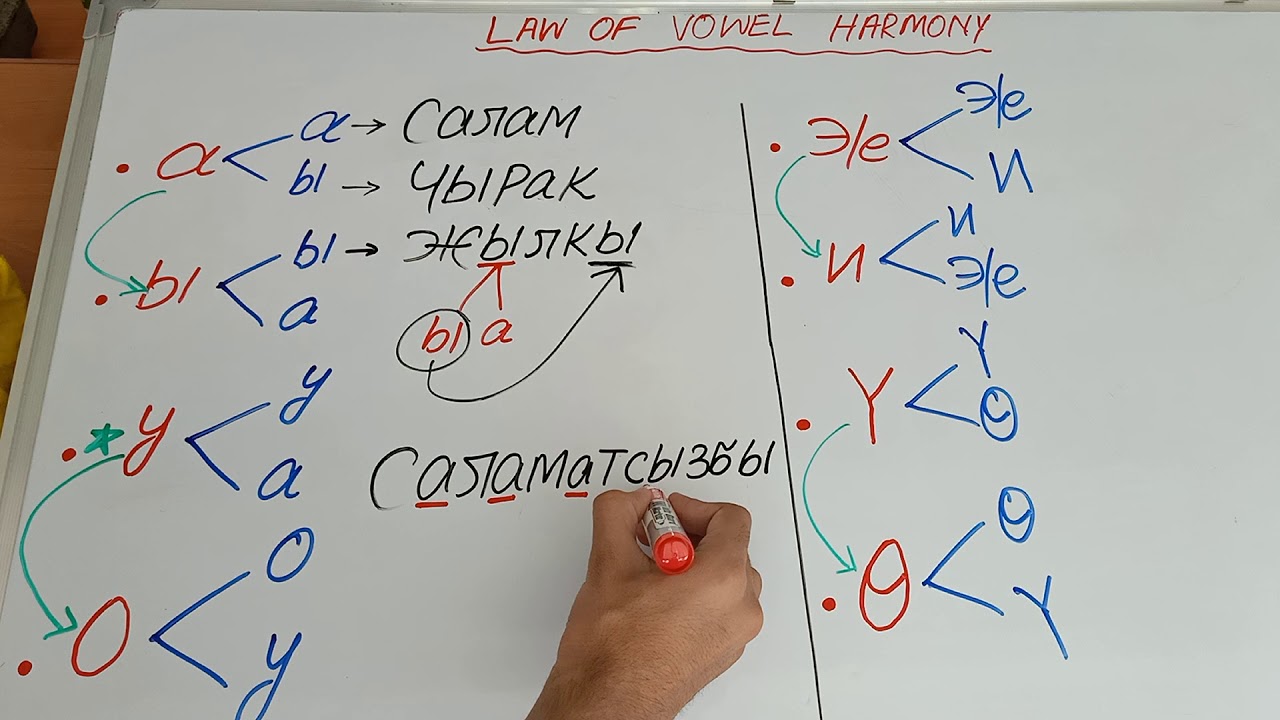 LAW OF VOWEL HARMONY
а а → Салам
ы → Чырак
ы ы → Жылкы
а
ы а
* у у
а
Саламатсызбы
о о
у
Э/е Э/е
и
и и
Э/е
ү ү
ө
ө ө
ү